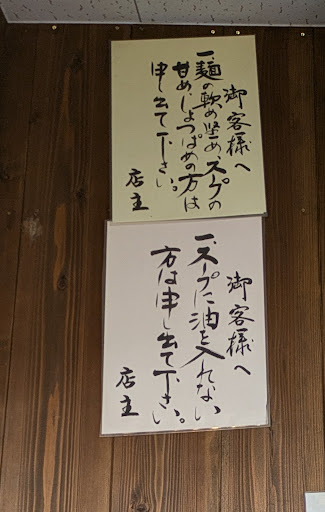 御客様へ
一、麺の軟め堅め、スープの
甘め、しょっぱめの方は
申し出て下さい。
店主
御客様へ
一、スープに油を入れない
方は申し出て下さい。
店主